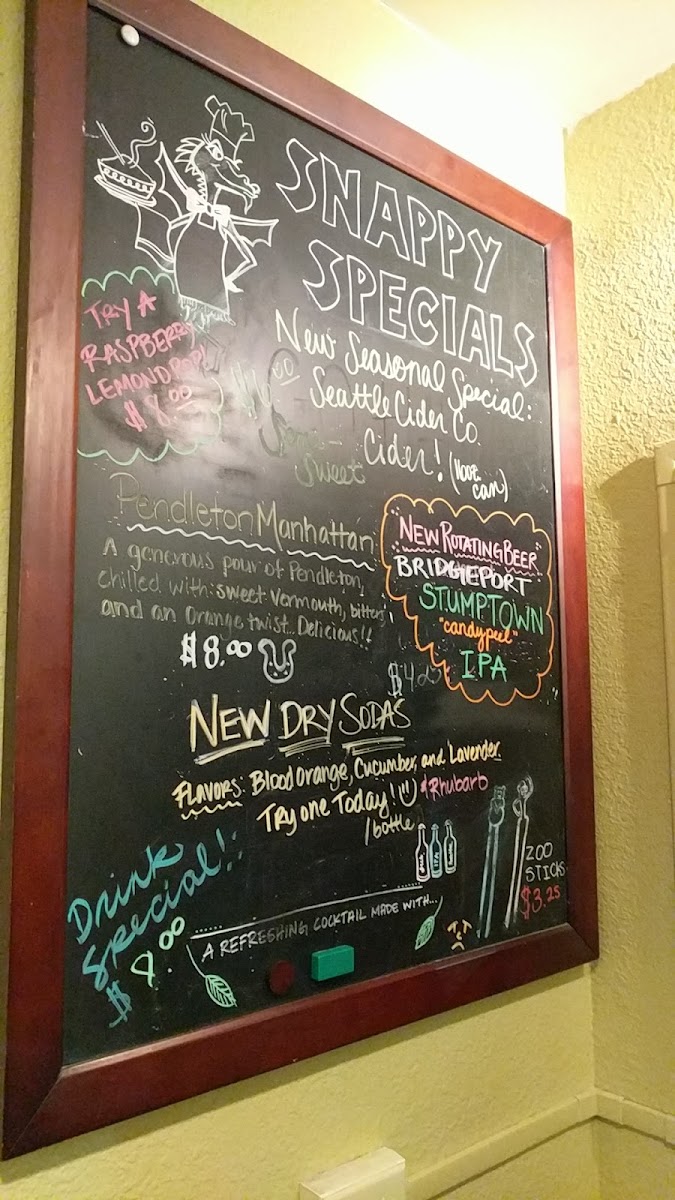 SNAPPY
SPECIALS
TRY A
RASPBERRY
LEMONDROP!
$8.00
New Seasonal Special:
Seattle Cider Co.
Cider!
(16oz can)
Semi-
Sweet
Pendleton Manhattan
A generous pour of Pendleton,
chilled with: sweet Vermouth, bitters,
and an Orange twist... Delicious!!
$8.00
NEW ROTATING BEER
BRIDGEPORT
STUMPTOWN
"candy peel"
IPA
NEW DRY SODAS
FLAVORS: Blood Orange, Cucumber, and Lavender
& Rhubarb
TRY one TODAY!
/bottle
Drink
Special!:
$8.00
A REFRESHING COCKTAIL MADE WITH...
IPA
ZOO
STICKS
$3.25